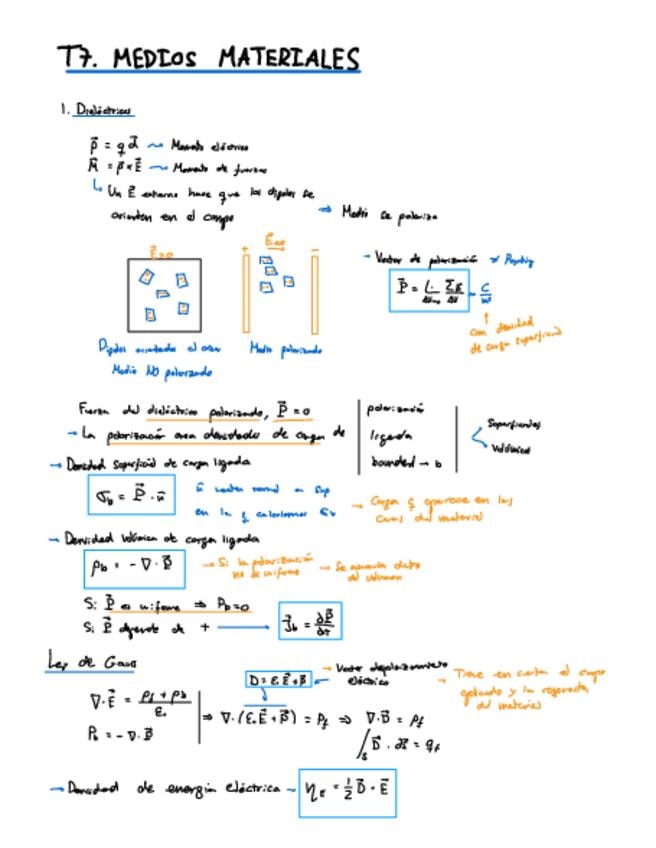 T7. MEDIOS MATERIALES
1. Dieléctricos
p⃗ = q d⃗ ~ Momento eléctrico
M⃗ = p⃗ × E⃗ ~ Momento de fuerzas
↳ Un E⃗ externo hace que los dipolos se
orienten en el campo ⇒ Medio se polariza
E⃗=0
+ E⃗ext −
→ Vector de polarización
P⃗ = L Σp⃗ / ΔV = C/m²
con densidad
de carga superficial
Medio polarizado
Medio NO polarizado
Fuera del dieléctrico polarizado, P⃗ = 0
→ La polarización crea densidades de carga de
polarización
ligada
bounded → b
Superficiales
Volúmicas
→ Densidad superficial de carga ligada
σb = P⃗ · u⃗
u⃗ vector normal a sup
en la q calculamos σb
→ Cargas q aparece en las
caras del material
→ Densidad volúmica de carga ligada
ρb = − ∇ · P⃗
→ Si la polarización
no es uniforme
→ Se acumula dentro
del volumen
Si P⃗ es uniforme ⇒ ρb = 0
Si P⃗ depende de t → J⃗b = ∂P⃗/∂t
Ley de Gauss
D = ε₀E⃗ + P⃗
→ Vector desplazamiento
eléctrico
→ Tiene en cuenta el campo
y la respuesta
del material
∇ · E⃗ = (ρf + ρb)/ε₀
ρb = − ∇ · P⃗
⇒ ∇ · (ε₀E⃗ + P⃗) = ρf ⇒ ∇ · D⃗ = ρf
∫s D⃗ · ds⃗ = qf
→ Densidad de energía eléctrica → ηE = 1/2 D⃗ · E⃗